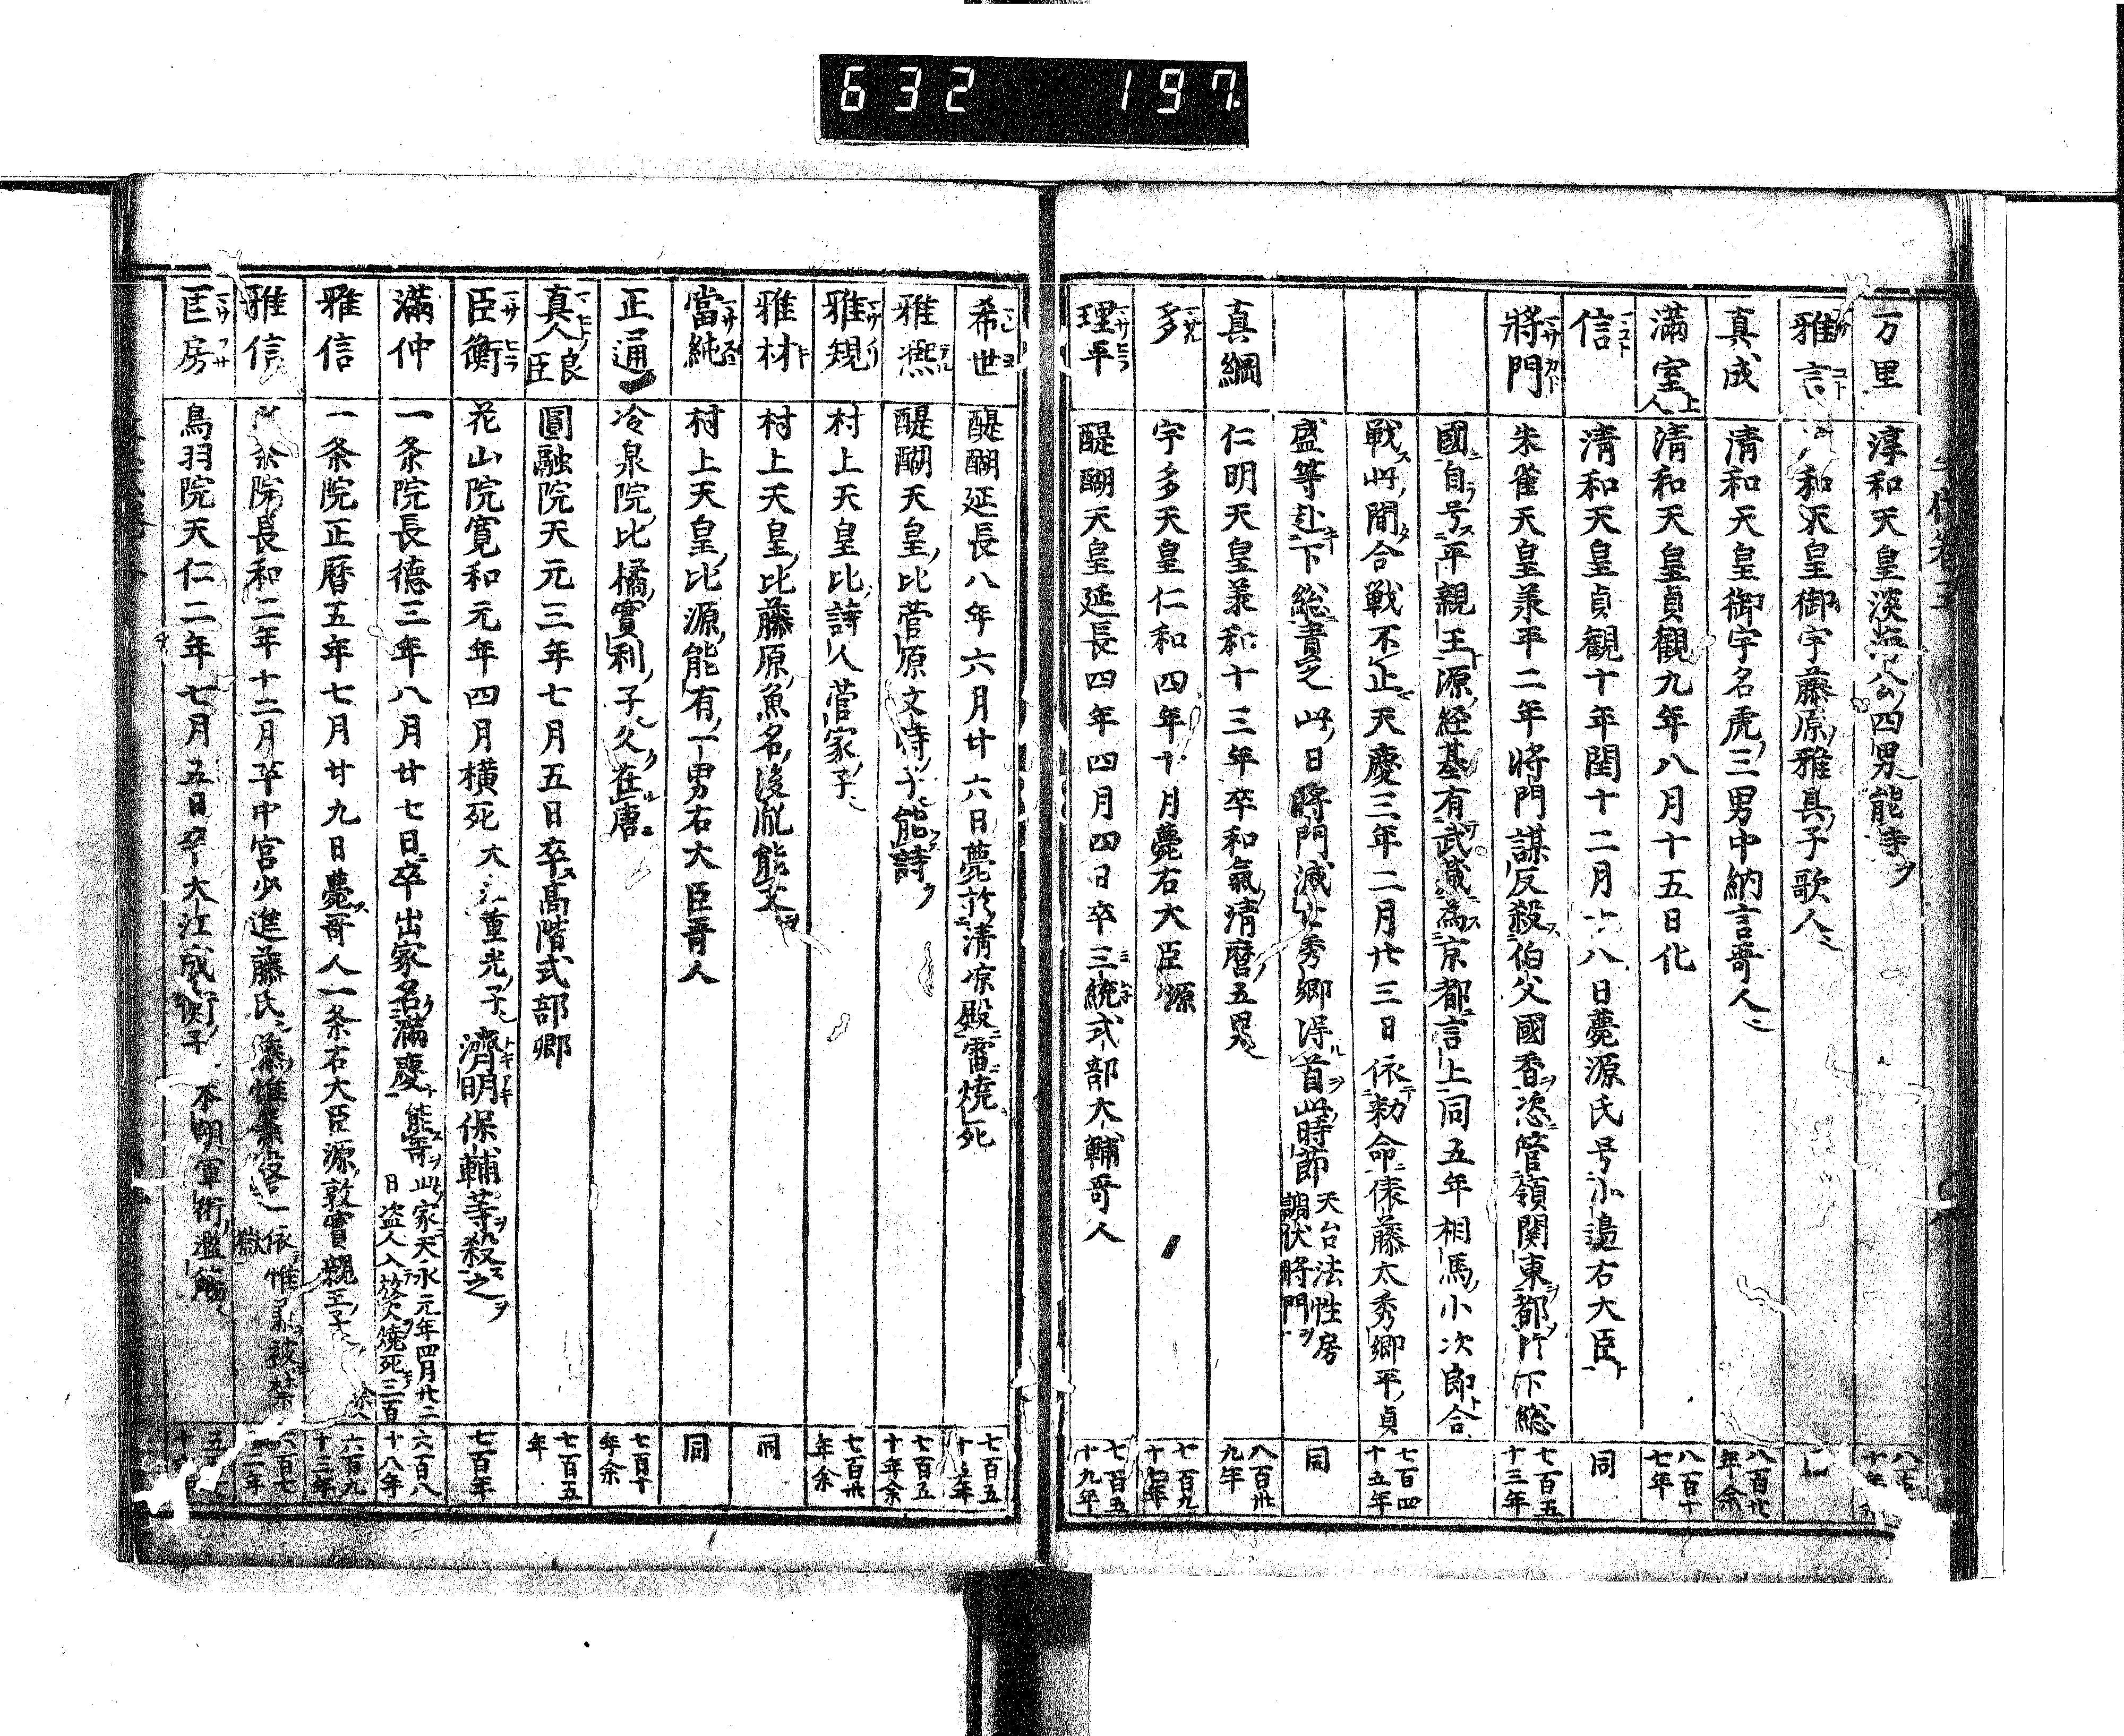 632 197
万里 淳和天皇淡海公四男能寺ヲ
雅言 和天皇御宇藤原雅具子歌人ニ 同
真成 清和天皇御宇名虎三男中納言哥人ニ 八百廿年余
満室上人 清和天皇貞観九年八月十五日化 八百十七年
信 清和天皇貞観十年閏十二月 八日薨源氏号小邉右大臣ト 同
将門 朱雀天皇兼平二年将門謀反殺伯父國香恣管領関東都 下総 七百五十三年
國自号平親王源経基有武蔵為京都言上同五年相馬小次郎ト合
戦此間合戦不止天慶三年二月廿三日依勅命俵藤太秀卿平貞 七百四十五年
盛等赴下総責之此日将門滅 秀卿得首此時節 天台法性房調伏将門ヲ 同
真綱 仁明天皇兼和十三年卒和氣清麿五男 八百卅九年
多 宇多天皇仁和四年十月薨右大臣源 七百九十七年
理平 醍醐天皇延長四年四月四日卒三統式部大輔哥人 七百五十九年
希世 醍醐延長八年六月廿六日薨於清凉殿雷焼死 七百五十五年
雅熈 醍醐天皇比菅原文時子能詩ヲ 七百五十年余
雅規 村上天皇比詩人菅家子 七百卅年余
雅材 村上天皇比藤原魚名後胤能文 同
當純 村上天皇比源能有一男右大臣哥人 同
正通 冷泉院比橘實利子久在唐 七百十年余
真人良臣 圓融院天元三年七月五日卒高階式部卿 七百五年
匡衡 花山院寛和元年四月横死 大江重光子 濟明保輔等殺之 七百年
満仲 一条院長徳三年八月廿七日卒出家名満慶 能哥 此家天永元年四月廿二日盗人入放火焼死三百余人 六百八十八年
雅信 一条院正暦五年七月廿九日薨哥人一条右大臣源敦實親王子 六百九十三年
雅信 院長和二年十二月卒中宮少進藤氏 依惟 被禁獄 六百七十二年
匡房 鳥羽院天仁二年七月五日卒大江成衡子 本朝軍術濫觴